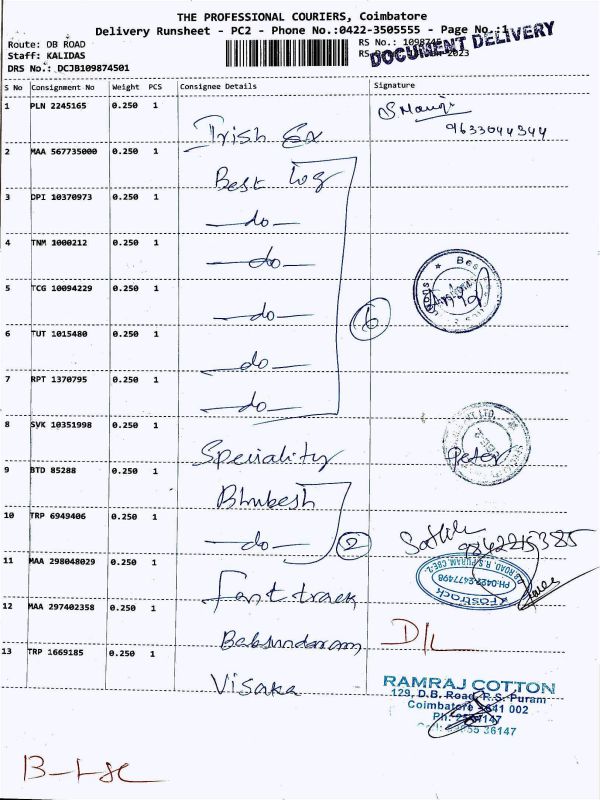 THE PROFESSIONAL COURIERS, Coimbatore
Delivery Runsheet - PC2 - Phone No.:0422-3505555 - Page No.:1
Route: DB ROAD
RS No.: 1098745
DOCUMENT DELIVERY
Staff: KALIDAS
2023
DRS No.: DCJB109874501
S No Consignment No Weight PCS Consignee Details Signature
1 PLN 2245165 0.250 1
9633044344
Irish Ex
2 MAA 567735000 0.250 1
Best log
3 DPI 10370973 0.250 1
—do—
4 TNM 1000212 0.250 1
—do—
5 TCG 10094229 0.250 1
—do—
6 TUT 1015480 0.250 1
6
—do—
7 RPT 1370795 0.250 1
—do—
8 SVK 10351998 0.250 1
Speciality
Peter
9 BTD 85288 0.250 1
Bhubesh
10 TRP 6949406 0.250 1
—do— 2
9842215385
11 MAA 298048029 0.250 1
Fasttrack
12 MAA 297402358 0.250 1
D/L
13 TRP 1669185 0.250 1
Visaka
RAMRAJ COTTON
129, D.B. Road, R.S. Puram
Coimbatore - 641 002